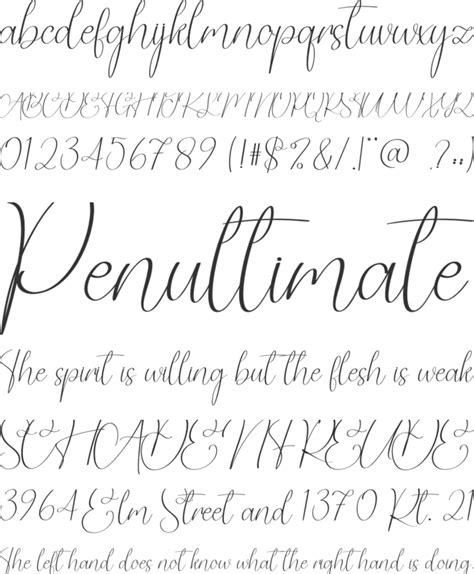 abcdefghijklmnopqrstuvwxyz
ABCDEFGHIJKLMNOPQRSTUVWXYZ
0123456789 (!#$%&/.|"@ ?:;)
Penultimate
The spirit is willing but the flesh is weak
SCHADENFREUDE
3964 Elm Street and 1370 Rt. 21
The left hand does not know what the right hand is doing.